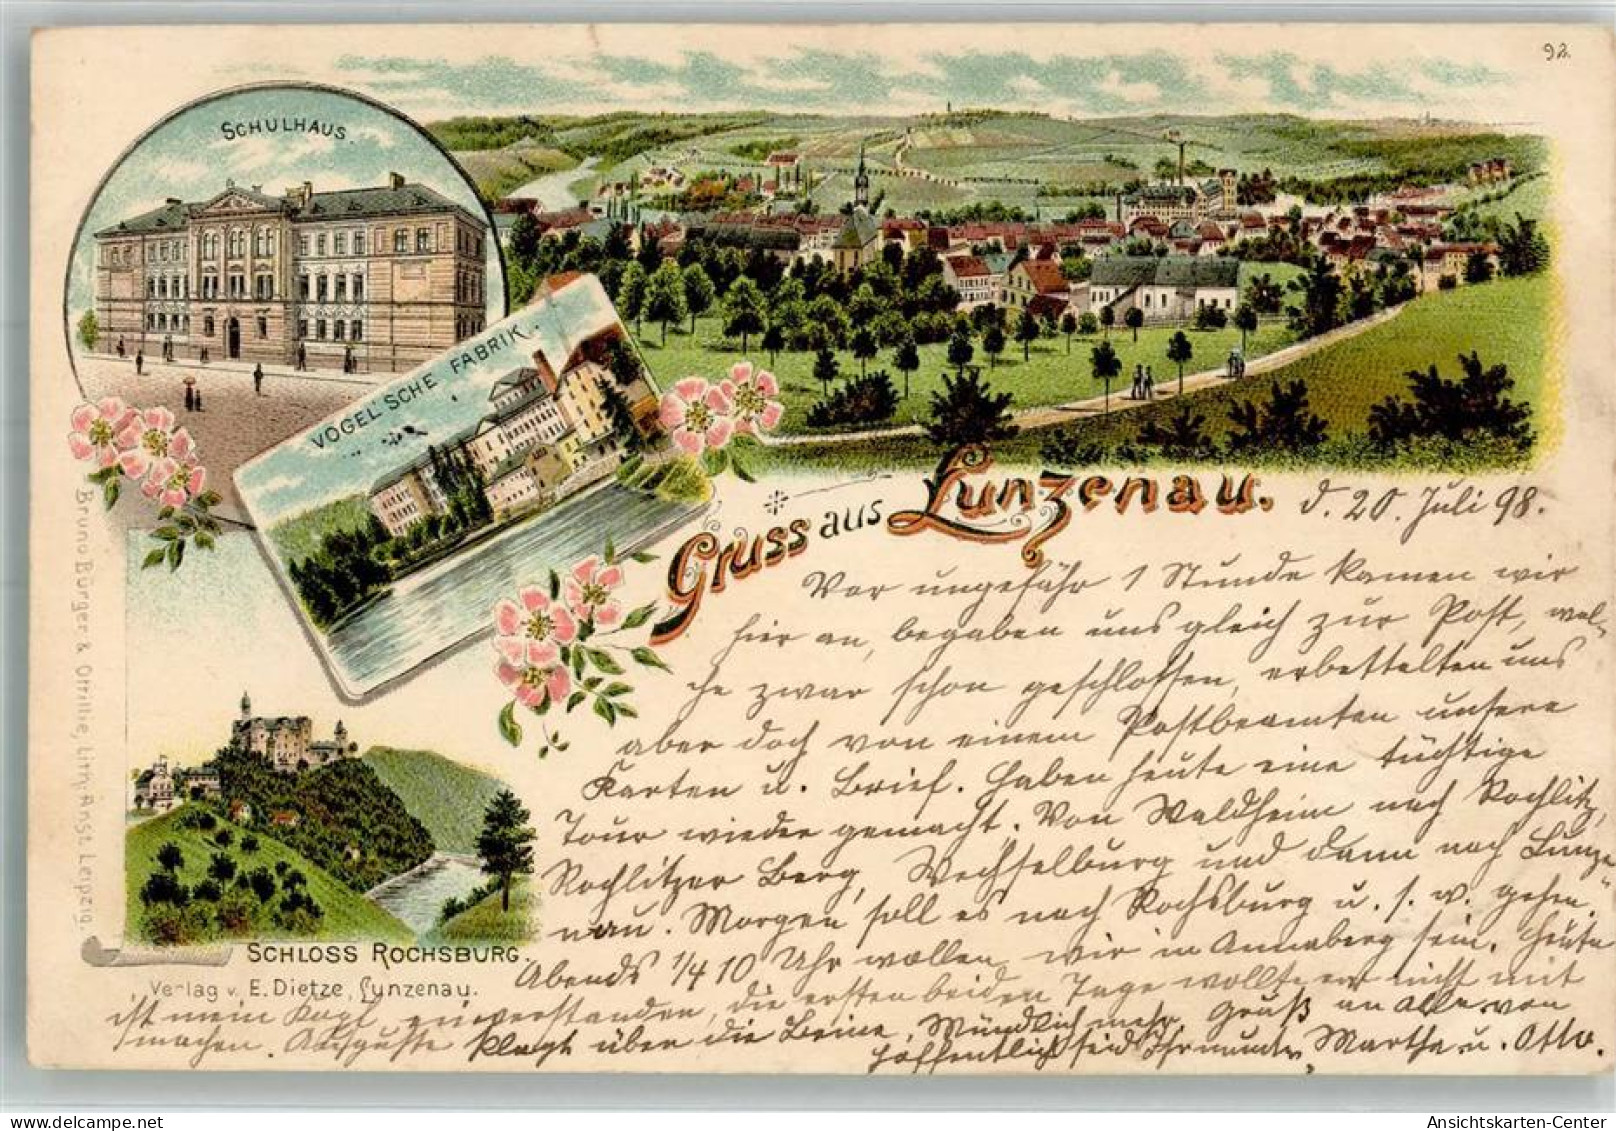 92.
SCHULHAUS.
VOGEL'SCHE FABRIK.
Gruss aus Lunzenau.
d. 20. Juli 98.
Vor ungefähr 1 Stunde kamen wir
hier an, begaben uns gleich zur Post, wel-
che zwar schon geschlossen, erbettelten uns
aber doch von einem Postbeamten unsere
Karten u. Brief. Haben heute eine tüchtige
Tour wieder gemacht. Von Waldheim nach Rochlitz,
Rochlitzer Berg, Wechselburg und dann nach Lunze-
nau. Morgen soll es nach Rochsburg u. s. w. gehen,
Abends 1/4 10 Uhr wollen wir in Annaberg sein. Heute
ist mein Kopf einverstanden, die ersten beiden Tage wollte er nicht mit
machen. Auguste klagt über die Beine. Mündlich mehr. Gruß an alle von
Hoffentlich seid Ihr munter, Martha u. Otto.
SCHLOSS ROCHSBURG.
Verlag v. E. Dietze, Lunzenau.
Bruno Bürger & Ottilie, Lith. Anst. Leipzig.
Ansichtskarten-Center